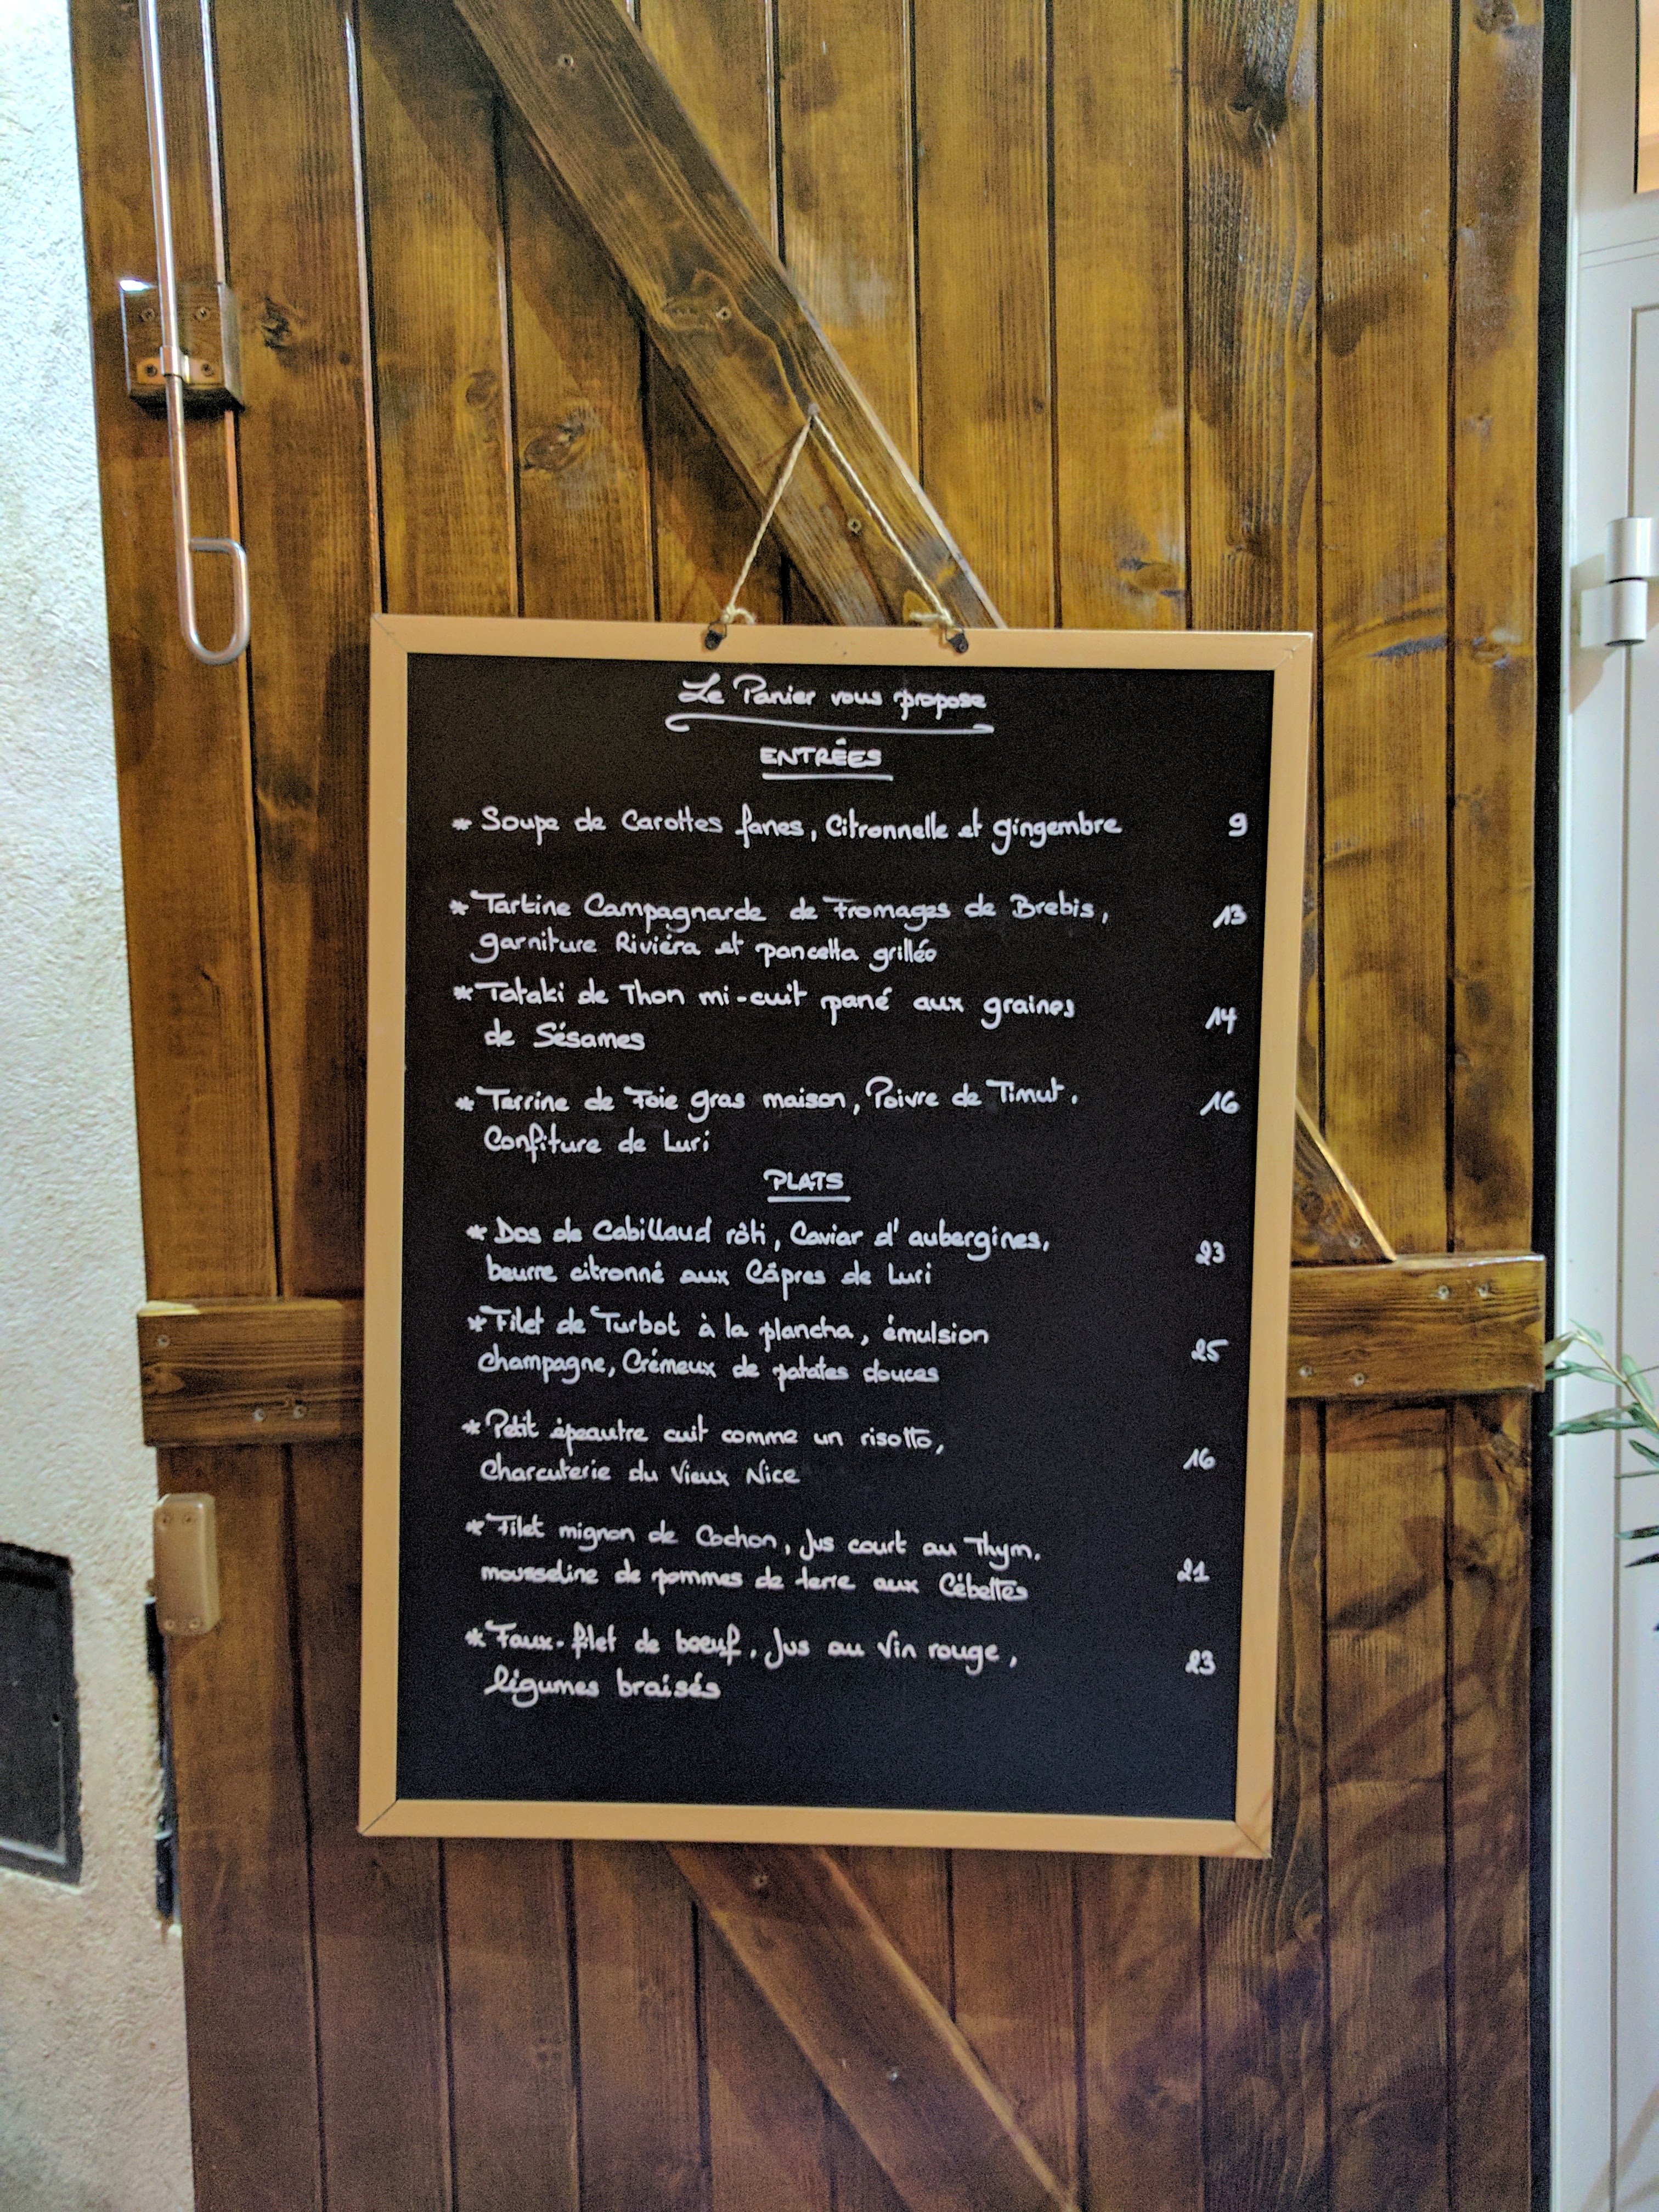 Le Panier vous propose
ENTRÉES
* Soupe de Carottes fanes, Citronnelle et gingembre 9
* Tartine Campagnarde de Fromages de Brebis, 13
garniture Riviéra et pancetta grillée
* Tataki de Thon mi-cuit pané aux graines
de Sésames 14
* Terrine de Foie gras maison, Poivre de Timut. 16
Confiture de Luri
PLATS
* Dos de Cabillaud rôti, Caviar d'aubergines, 23
beurre citronné aux Câpres de Luri
* Filet de Turbot à la plancha, émulsion
champagne, Crémeux de patates douces 25
* Petit épeautre cuit comme un risotto,
Charcuterie du Vieux Nice 16
* Filet mignon de Cochon, Jus court au Thym.
mousseline de pommes de terre aux Cébettes 21
* Faux-filet de boeuf. Jus au Vin rouge, 23
légumes braisés